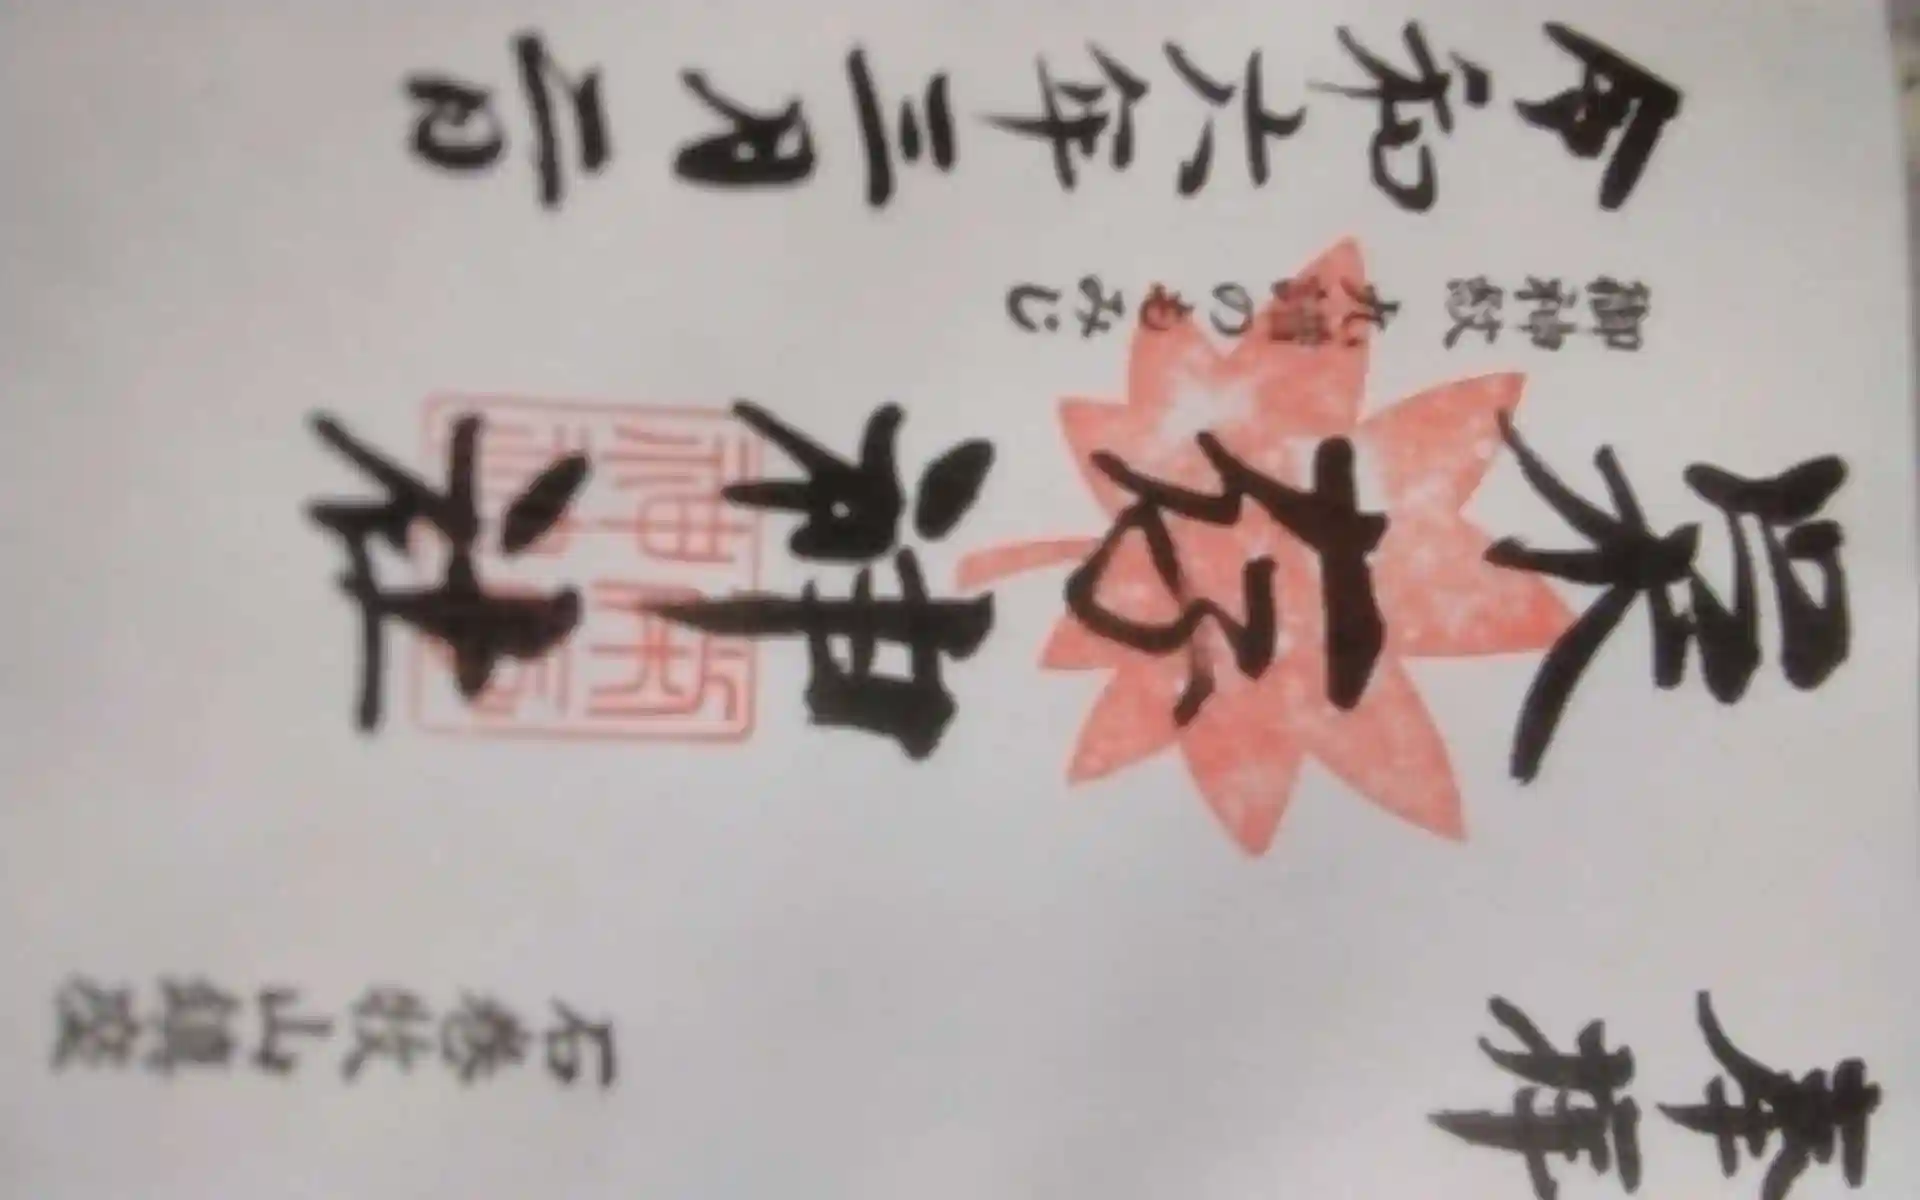 奉拝
石巻牧山鎮座
榮存神社
御神紋 のもみじ
令和六年三月二日